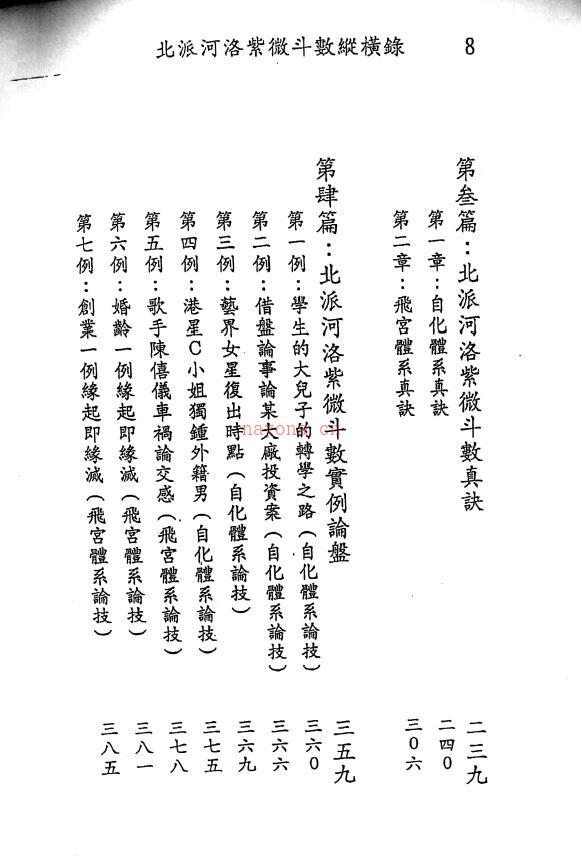 北派河洛紫微斗數縱橫錄 8
第叁篇：北派河洛紫微斗數真訣 二三九
第一章：自化體系真訣 二四0
第二章：飛宮體系真訣 三0六
第肆篇：北派河洛紫微斗數實例論盤 三五九
第一例：學生的大兒子的轉學之路（自化體系論技） 三六0
第二例：借盤論事論某大廠投資案（自化體系論技） 三六六
第三例：藝界女星復出時點（自化體系論技） 三六九
第四例：港星C小姐獨鍾外籍男（自化體系論技） 三七五
第五例：歌手陳僖儀車禍論交感（飛宮體系論技） 三七八
第六例：婚齡一例緣起即緣滅（飛宮體系論技） 三八一
第七例：創業一例緣起即緣滅（飛宮體系論技） 三八五